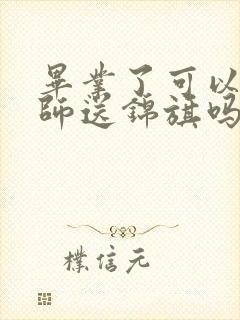 畢業了可以
師送錦旗嗎
樸信元